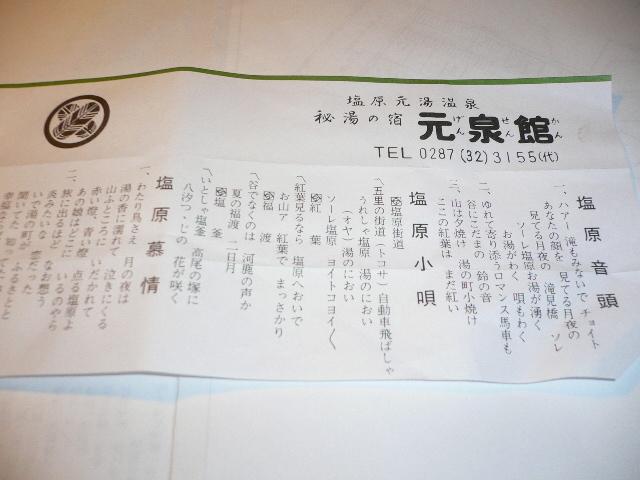 塩原元湯温泉
秘湯の宿 元泉館
げん せん かん
TEL 0287(32)3155(代)
塩原音頭
一、ハアー 滝もみないで チョイト
あなたの顔を 見てる月夜の
見てる月夜の 滝見橋 ソレ
ソーレ塩原お湯が湧く
お湯がわく 唄もわく
二、ゆれて寄り添うロマンス馬車も
谷にこだまの 鈴の音
三、山は夕焼け 湯の町小焼け
ここの紅葉は まだ紅い
塩原小唄
塩原街道
〽五里の街道(トコサ)自動車飛ばしゃ
うれしゃ塩原 湯のにおい
(オヤ)湯のにおい
ソーレ塩原 ヨイトコヨイ〱
紅葉
〽紅葉見るなら 塩原へおいで
お山ア 紅葉で まっさかり
福渡
〽谷でなくのは 河鹿の声か
夏の福渡 二日月
塩釜
〽いとしゃ塩釜 高尾の塚に
八汐つゝじの 花が咲く
塩原慕情
一、わたり鳥さえ 月の夜は
湯の香に濡れて 泣きにくる
山ふところに いだかれて
赤い燈、青い燈 点る塩原よ
あの娘はどこに いるのやら
二、旅に出るほど なお想う